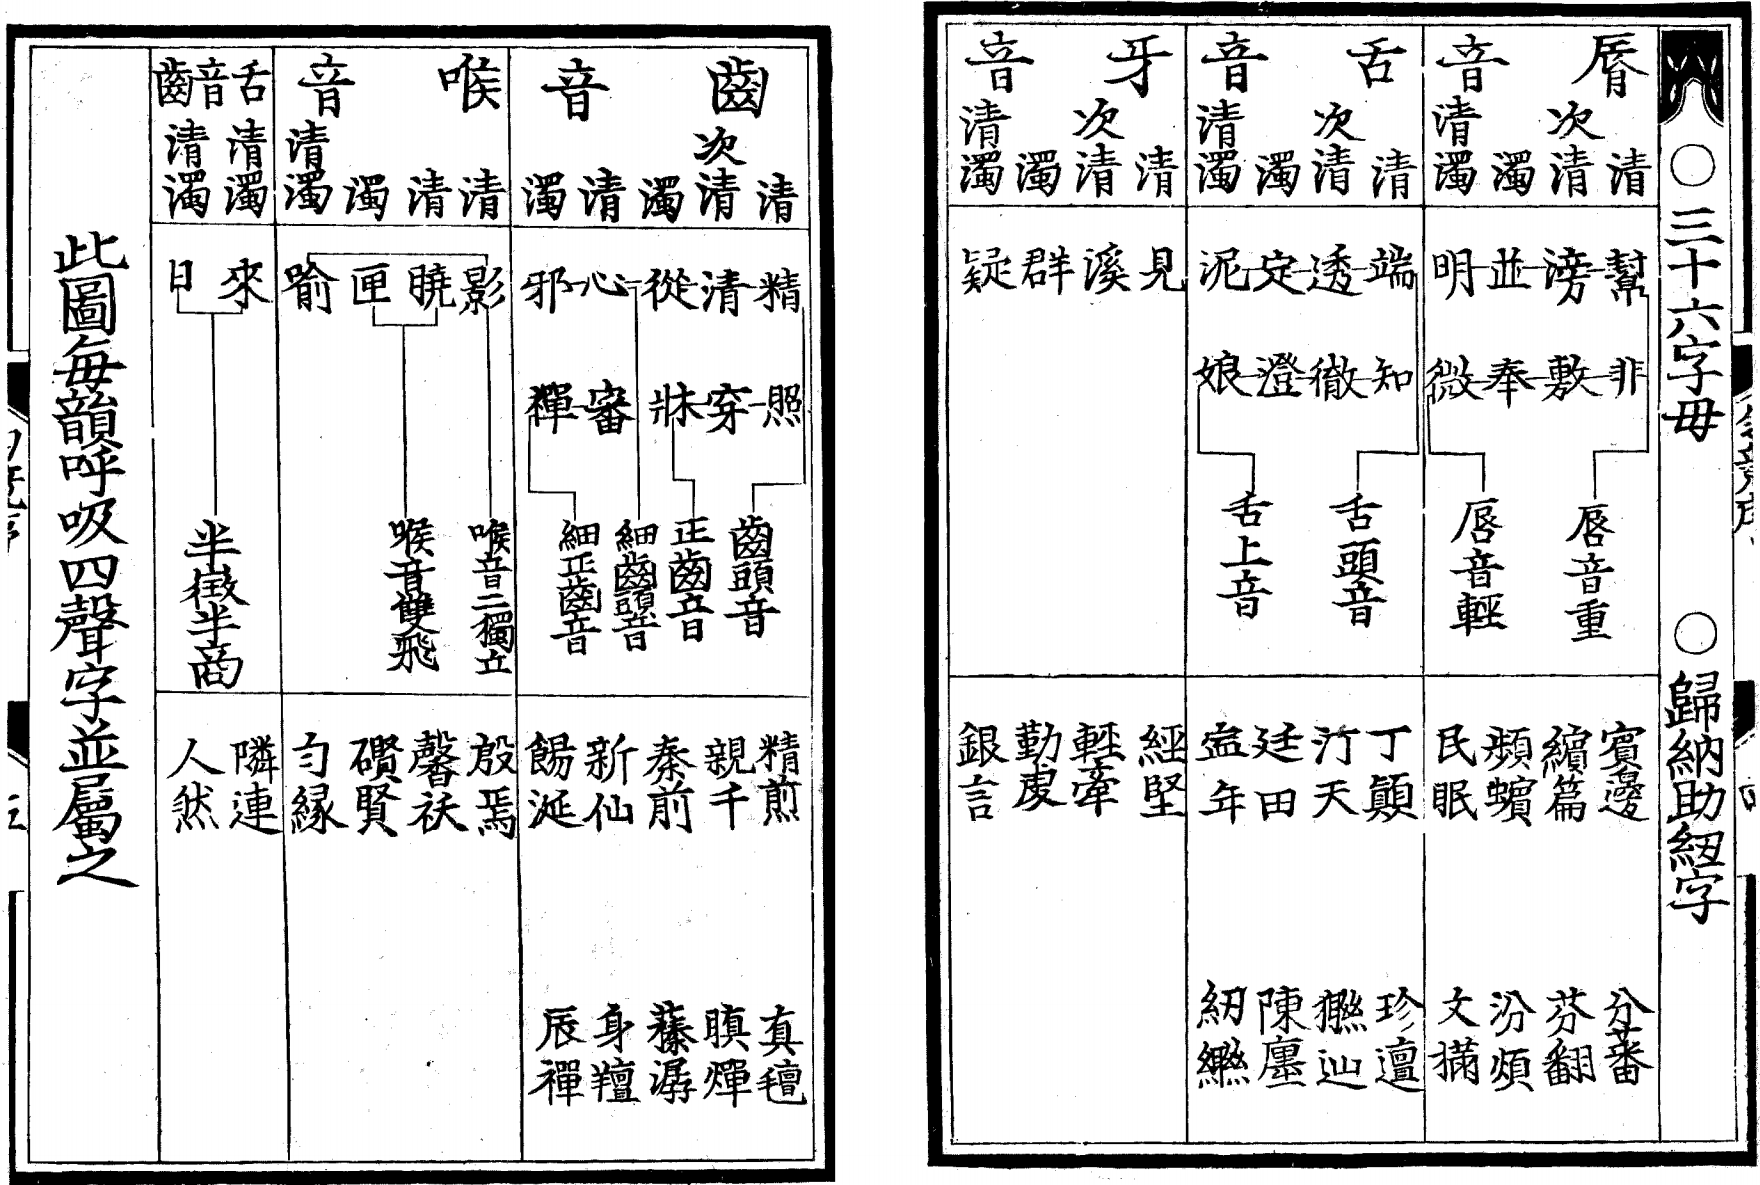 ○三十六字母　○歸納助紐字
脣音
清　次清　濁　清濁
幫　滂　並　明
非　敷　奉　微
脣音重　脣音輕
賓邊　繽篇　頻蠙　民眠
分蕃　芬翻　汾煩　文樠
舌音
清　次清　濁　清濁
端　透　定　泥
知　徹　澄　娘
舌頭音　舌上音
丁顛　汀天　廷田　年
珍邅　辿　陳廛　紉
牙音
清　次清　濁　清濁
見　溪　群　疑
經堅　輕牽　勤虔　銀言
齒音
清　次清　濁　清　濁
精　清　從　心　邪
照　穿　牀　審　禪
齒頭音　正齒音　細齒頭音　細正齒音
精煎　親千　秦前　新仙　餳涎
真氊　瞋燀　榛潺　身羶　辰禪
喉音
清　清　濁　清濁
影　曉　匣　喻
喉音二獨立　喉音雙飛
殷焉　馨祆　礥賢　勻緣
舌音齒
清濁　清濁
來　日
半徵半商
隣連　人然
此圖每韻呼吸四聲字並屬之